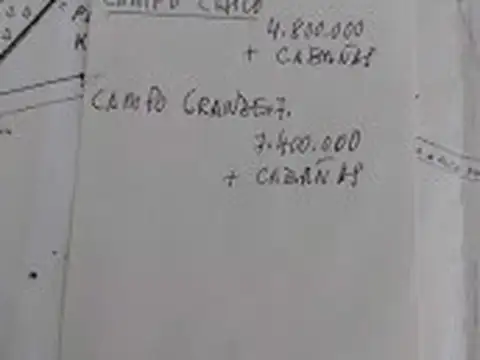 CAMPO CHICO
4.800.000
+ CABAÑAS
CAMPO GRANDE
7.400.000
+ CABAÑAS